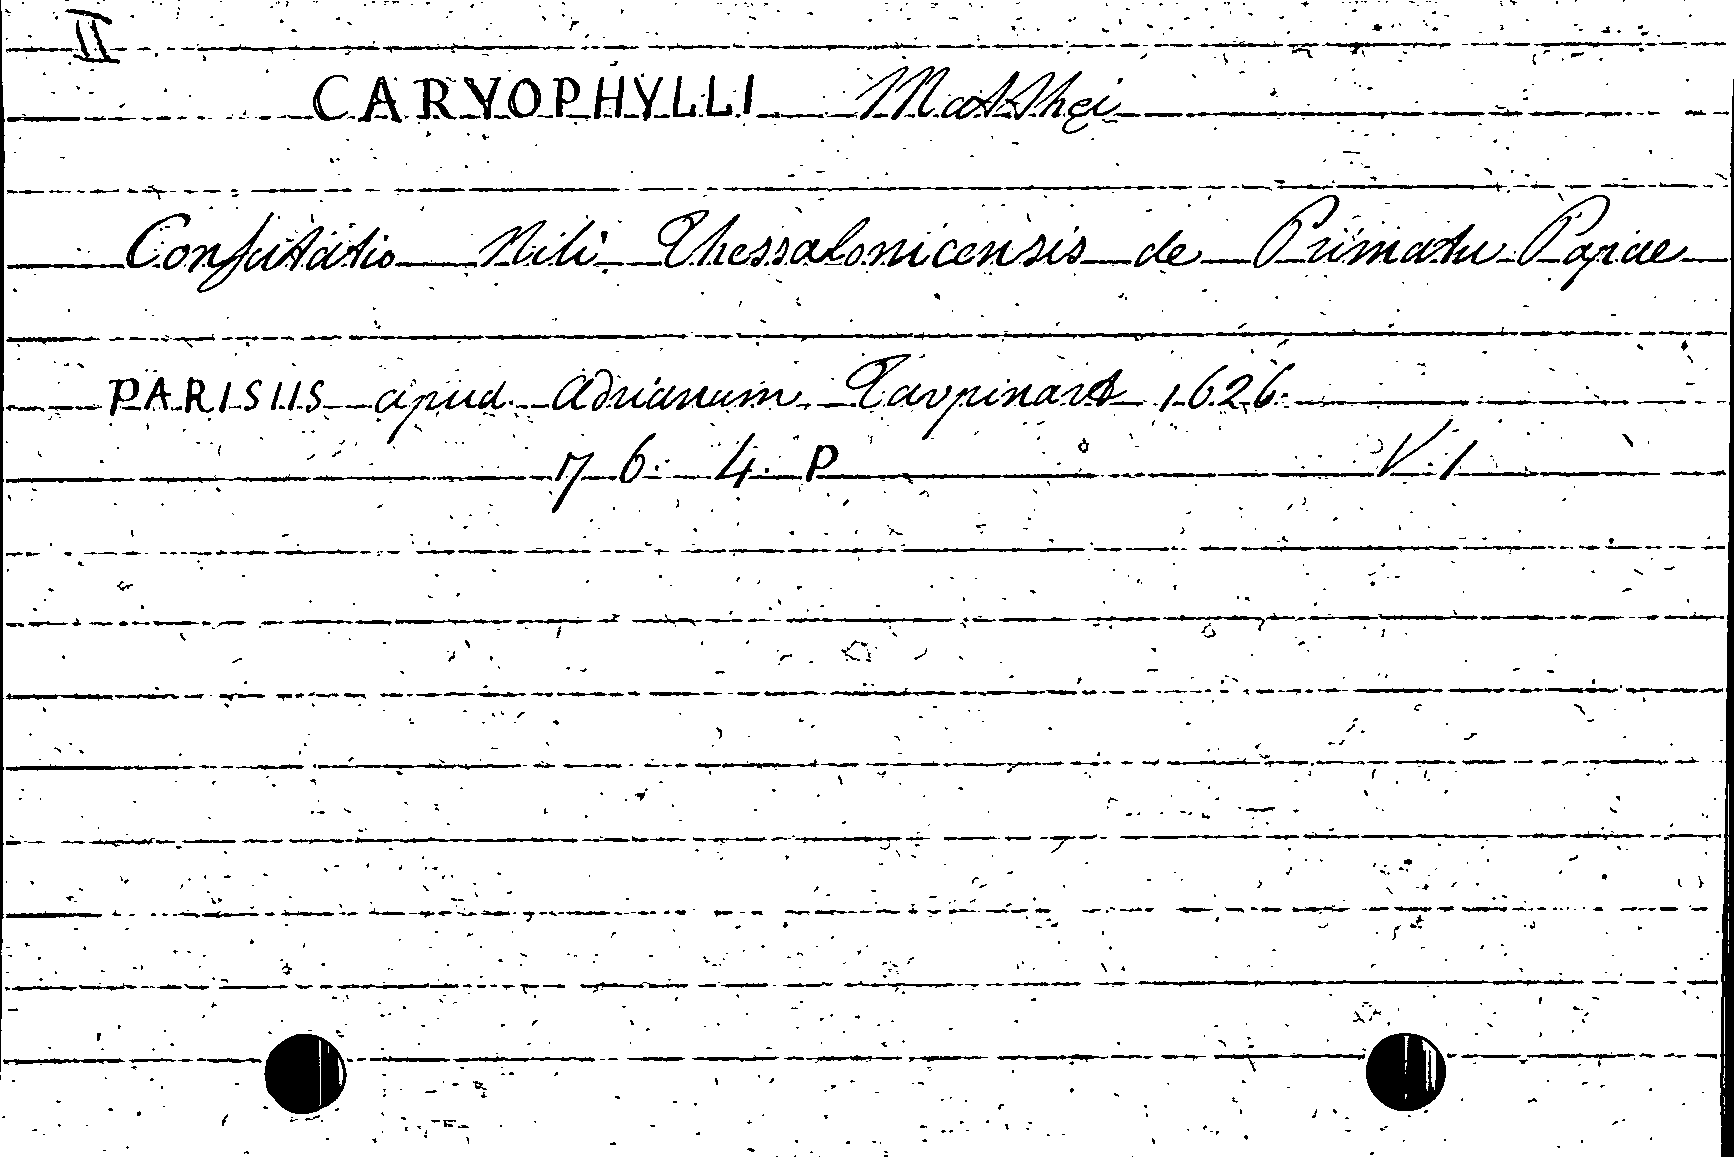 II
CARYOPHYLLI Matthei
Confutatio Nili Thessalonicensis de Primatu Papae
PARISIIS apud Adrianum Taupinart 1626.
76. 4. P V. 1